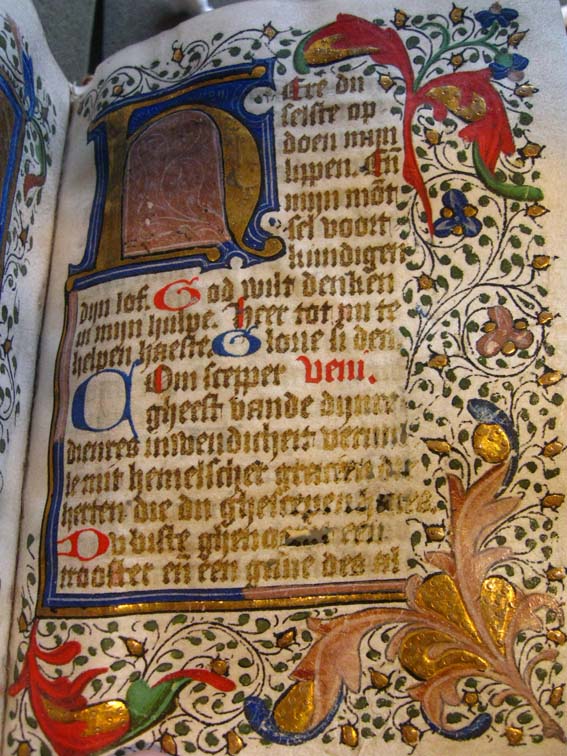 Here du
selste op
doen mijn
lippen. En
mijn mōt
sel voort
kundigen
dijn lof. God wilt denken
in mijn hulpe. heer tot mi te
helpen haeste. Glorie si den.
Com scepper veni.
gheest vande dijnre
dienres inwendicheit vervul
le mit hemelscher gracien
herten die du ghescepen
Du biste ghe een
trooster en een gave des al